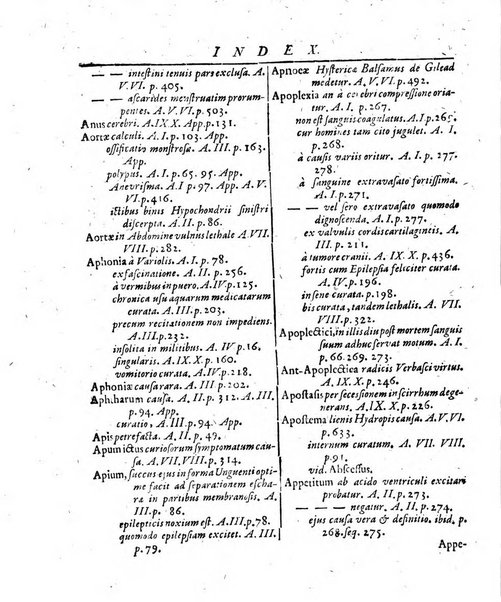 INDEX.
— — intestini tenuis pars exclusa. A.
V. VI. p. 405.
— — ascarides menstruatim prorum-
pentes. A. V. VI. p. 503.
Anus cerebri. A. IX. X. App. p. 131.
Aortæ calculi. A. I. p. 103. App.
ossificatio monstrosæ. A. III. p. 163.
App.
polypus. A. I. p. 65. 95. App.
Anevrisma. A. I p. 97. App. A. V.
VI. p. 416.
ictibus binis Hypochondrii sinistri
discerpta. A. II. p. 86.
Aortæ in Abdomine vulnus lethale A. VII.
VIII. p. 282.
Aphonia à Variolis. A. I. p. 78.
ex fascinatione. A. II. p. 256.
à vermibus in puero. A. IV p. 125.
chronica usu aquarum medicatarum
curata. A. III. p. 203.
precum recitationem non impediens.
A. III. p. 232.
insolita in militibus. A. IV p. 16.
singularis. A. IX. X. p. 160.
vomitorio curata. A. IV. p. 218.
Aphoniæ causa rara. A. III p. 202.
Aphtharum causa. A. II. p. 312. A. III
p. 94. App.
curatio, A. III. p. 94. App.
Apis petrefacta. A. II. p. 49.
Apum ictus curiosorum symptomatum cau-
sa. A. VII. VIII. p. 314.
Apium, succus ejus in forma Unguenti opti-
me facit ad separationem escha-
ræ in partibus membranosis. A.
III. p. 86.
epilepticis noxium est. A. III. p. 78.
quomodo epilepsiam excitet. A. III.
p. 79.
Apnoeæ Hystericæ Balsamus de Gilead
medetur. A. V. VI. p. 492.
Apoplexia an à cerebri compressione oria-
tur. A. I. p. 267.
non est sanguis coagulatus. A. I p. 265.
cur homines tam cito jugulet. A. I.
p. 268.
à causis variis oritur. A. I. p. 277.
278.
à sanguine extravasato fortissima.
A. I. p. 271.
— — vel sero extravasato quomodo
dignoscenda. A. I. p. 277.
ex valvulis cordis cartilagineis. A.
III. p. 211.
à tumore cranii. A. IX. X. p. 436.
fortis cum Epilepsia feliciter curata.
A. IV. p. 196.
in sene curata. p. 198.
bis curata, tandem lethalis. A. VII.
VIII. p. 322.
Apoplectici, in illis diu post mortem sangui
suum adhuc servat motum. A. I.
p. 66. 269. 273.
Ant-Apoplectica radicis Verbasci virtus.
A. IX. X. p. 246.
Apostasis per secessionem in scirrhum dege-
nerans. A. IX. X. p. 226.
Apostema lienis Hydropis causa. A. V. VI.
p. 633.
internum curatum. A. VII. VIII.
p. 91.
vid. Abscessus.
Appetitum ab acido ventriculi excitari
probatur. A. II. p. 273.
— — — negatur. A. II p. 274.
ejus causa vera & definitio. ibid. p.
268. seq. 275.
Appe-